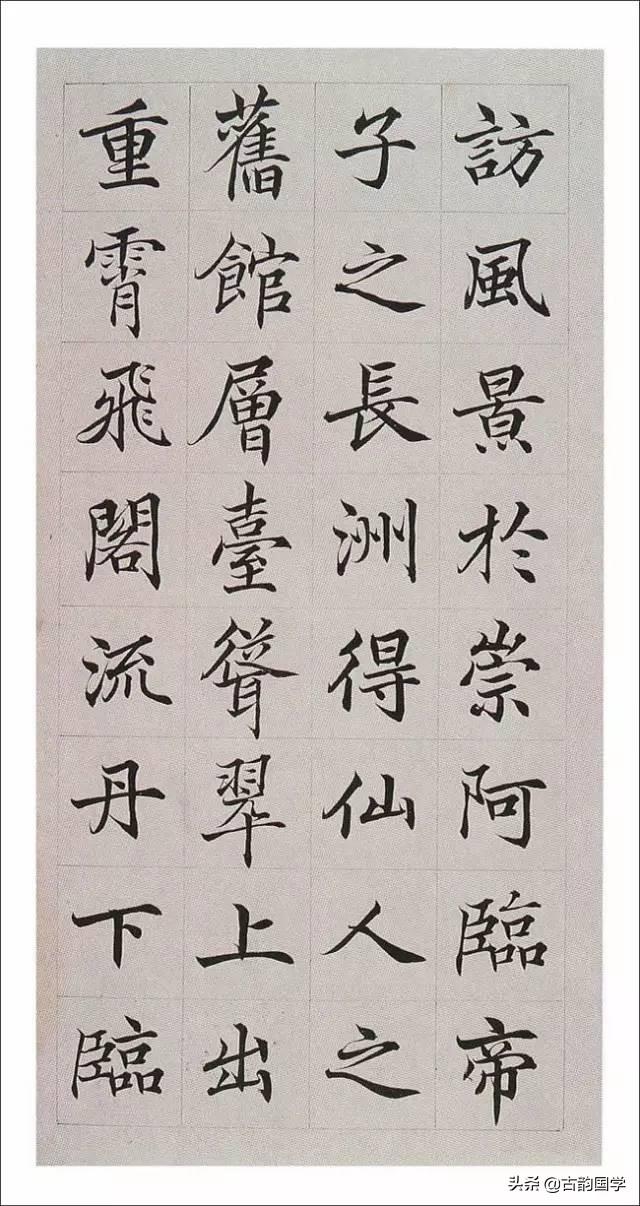 訪風景於崇阿臨帝
子之長洲得仙人之
舊館層臺聳翠上出
重霄飛閣流丹下臨
头条 @古韵国学